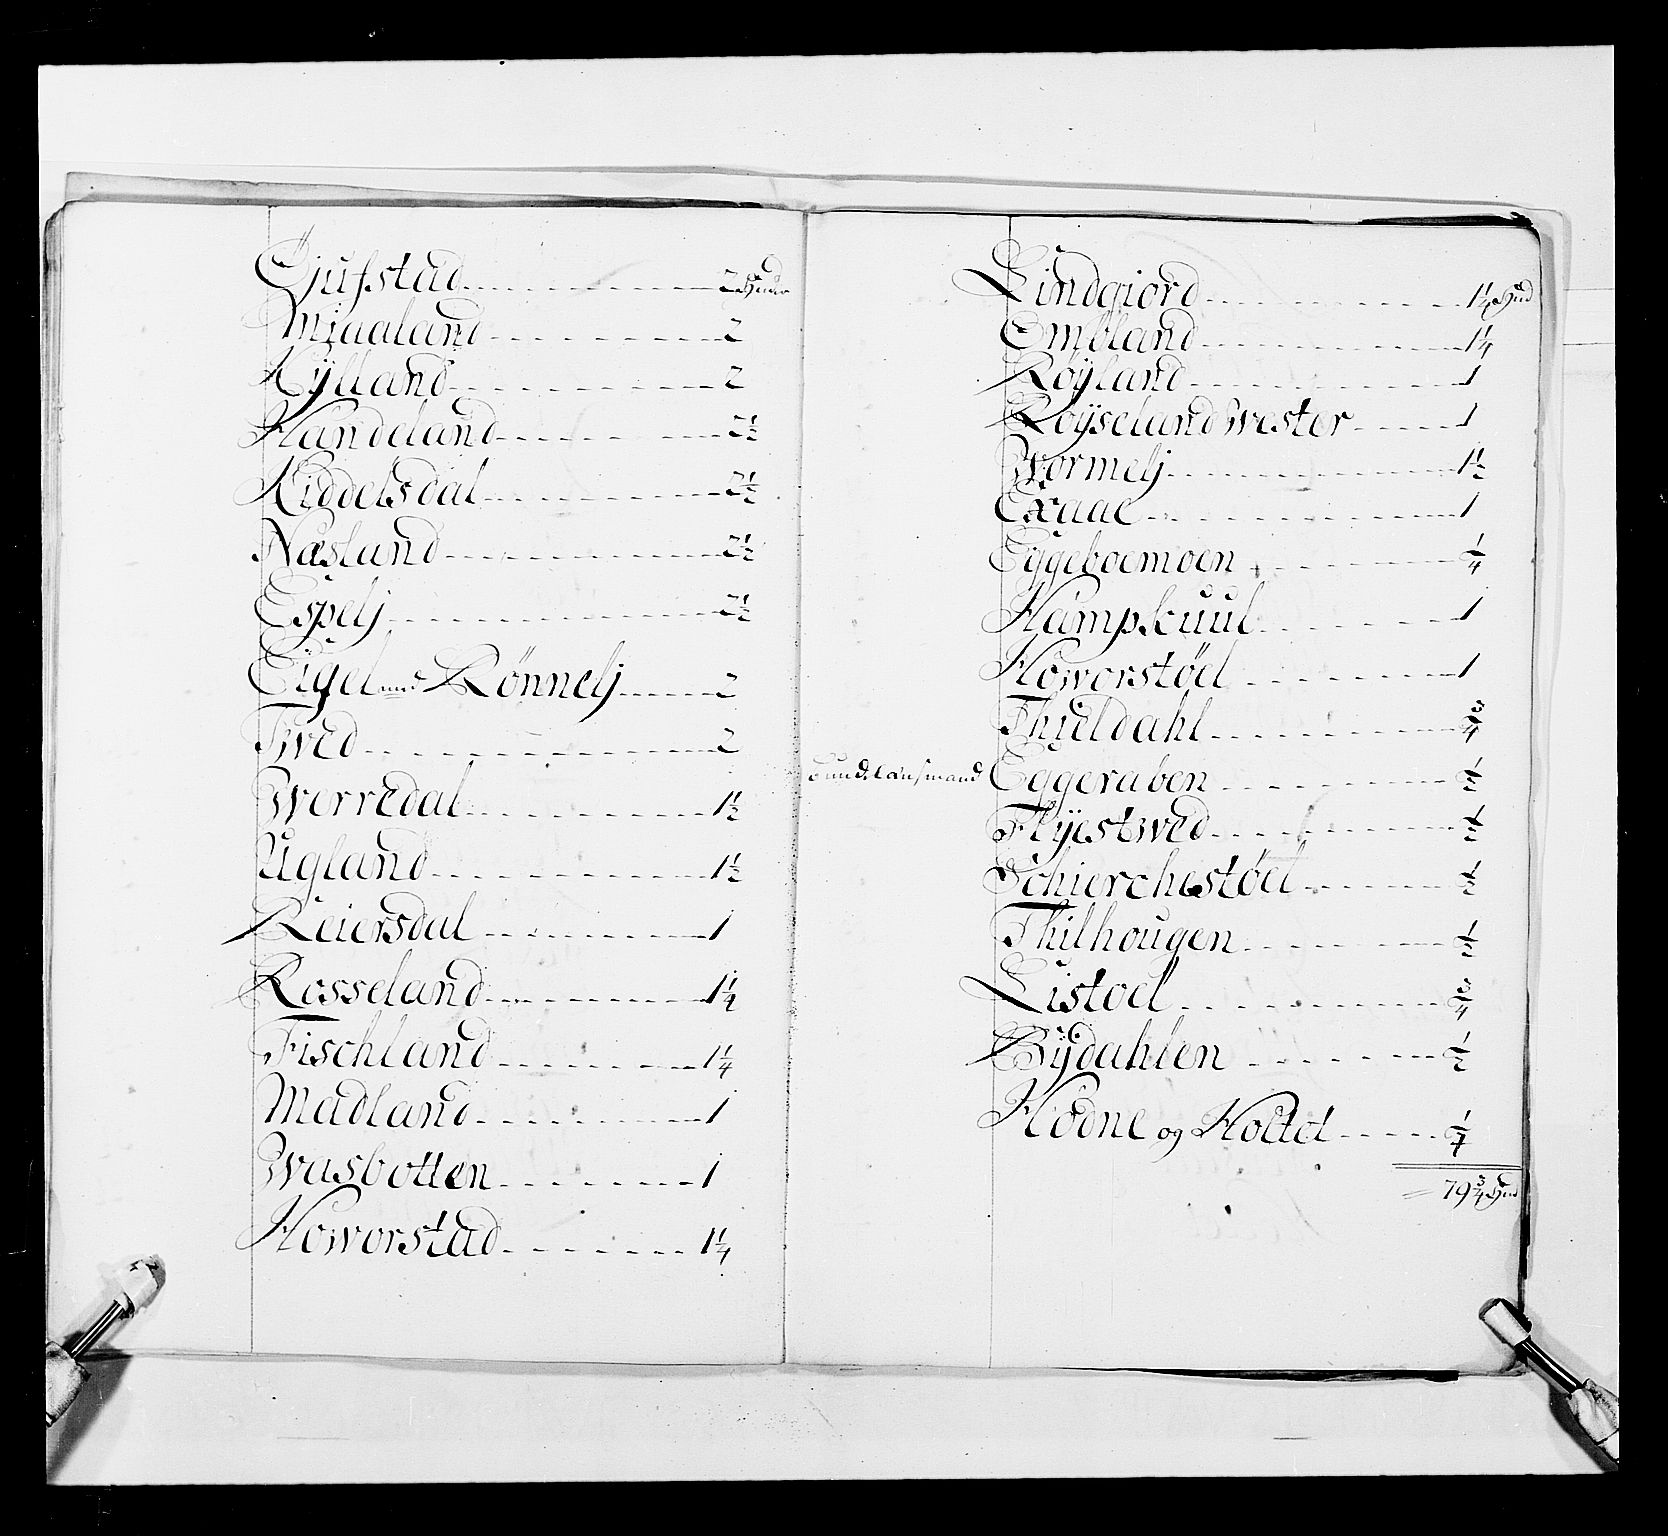 Øjufstad 2 Huder
Miaaland 2
Kÿlland 2
Handeland 2½
Kiddelsdal 2½
Næsland 2½
Espelj 2½
Eigel med Rönnelj 2
Tved 2
Werredal 1½
Ugland 1½
Reiersdal 1
Rosseland 1¼
Fischland 1¼
Madland 1
Wasbotten 1
Howorstad 1¼
Lindgiord 1¼ Hud
Ombland 1¼
Röÿland 1
Röÿseland Wester 1
Wormelj 1½
Exaae 1
Eÿgeboemoen ¼
Hampkuul 1
Howorstøel 1
Thieldahl ¾
Eggeraben ½
Flÿestwed ½
Schierchestøel ½
Thilhougen ½
Listoel ¾
Bÿdahlen ½
Hodne og Holtet ¼
= 79¾ Hud